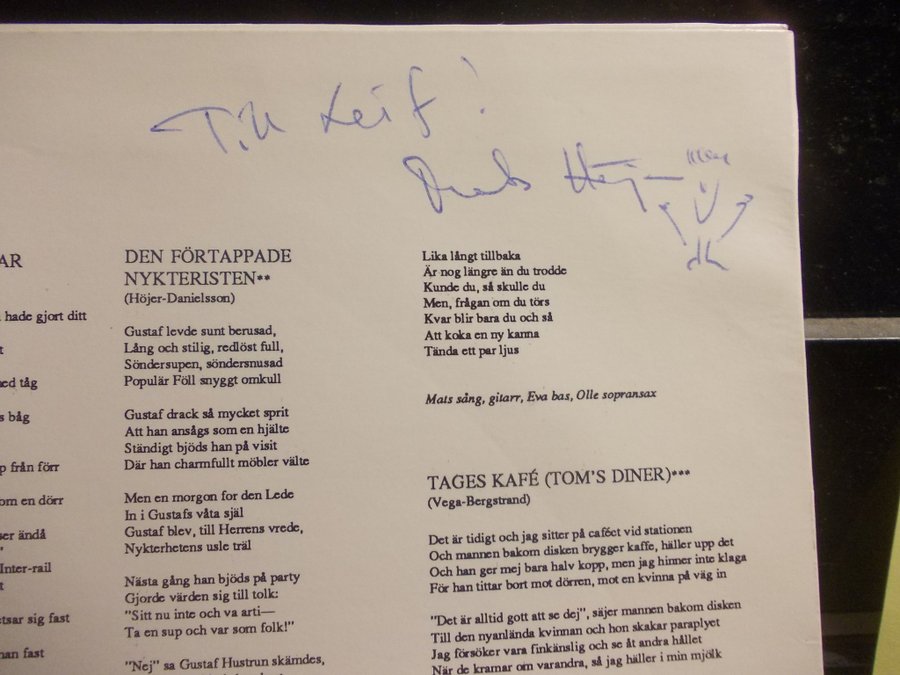 Till Leif!
Mats Höj
AR
hade gjort ditt
t
ned tåg
s båg
p från förr
om en dörr
ser ändå
"
Inter-rail
t
etsar sig fast
nan fast
DEN FÖRTAPPADE
NYKTERISTEN**
(Höjer-Danielsson)
Gustaf levde sunt berusad,
Lång och stilig, redlöst full,
Söndersupen, söndersnusad
Populär Föll snyggt omkull
Gustaf drack så mycket sprit
Att han ansågs som en hjälte
Ständigt bjöds han på visit
Där han charmfullt möbler välte
Men en morgon for den Lede
In i Gustafs våta själ
Gustaf blev, till Herrens vrede,
Nykterhetens usle träl
Nästa gång han bjöds på party
Gjorde värden sig till tolk:
"Sitt nu inte och va arti—
Ta en sup och var som folk!"
"Nej" sa Gustaf Hustrun skämdes,
Lika långt tillbaka
Är nog längre än du trodde
Kunde du, så skulle du
Men, frågan om du törs
Kvar blir bara du och så
Att koka en ny kanna
Tända ett par ljus
Mats sång, gitarr, Eva bas, Olle sopransax
TAGES KAFÉ (TOM'S DINER)***
(Vega-Bergstrand)
Det är tidigt och jag sitter på caféet vid stationen
Och mannen bakom disken brygger kaffe, häller upp det
Och han ger mej bara halv kopp, men jag hinner inte klaga
För han tittar bort mot dörren, mot en kvinna på väg in
"Det är alltid gott att se dej", säjer mannen bakom disken
Till den nyanlända kvinnan och hon skakar paraplyet
Jag försöker vara finkänslig och se åt andra hållet
När de kramar om varandra, så jag häller i min mjölk